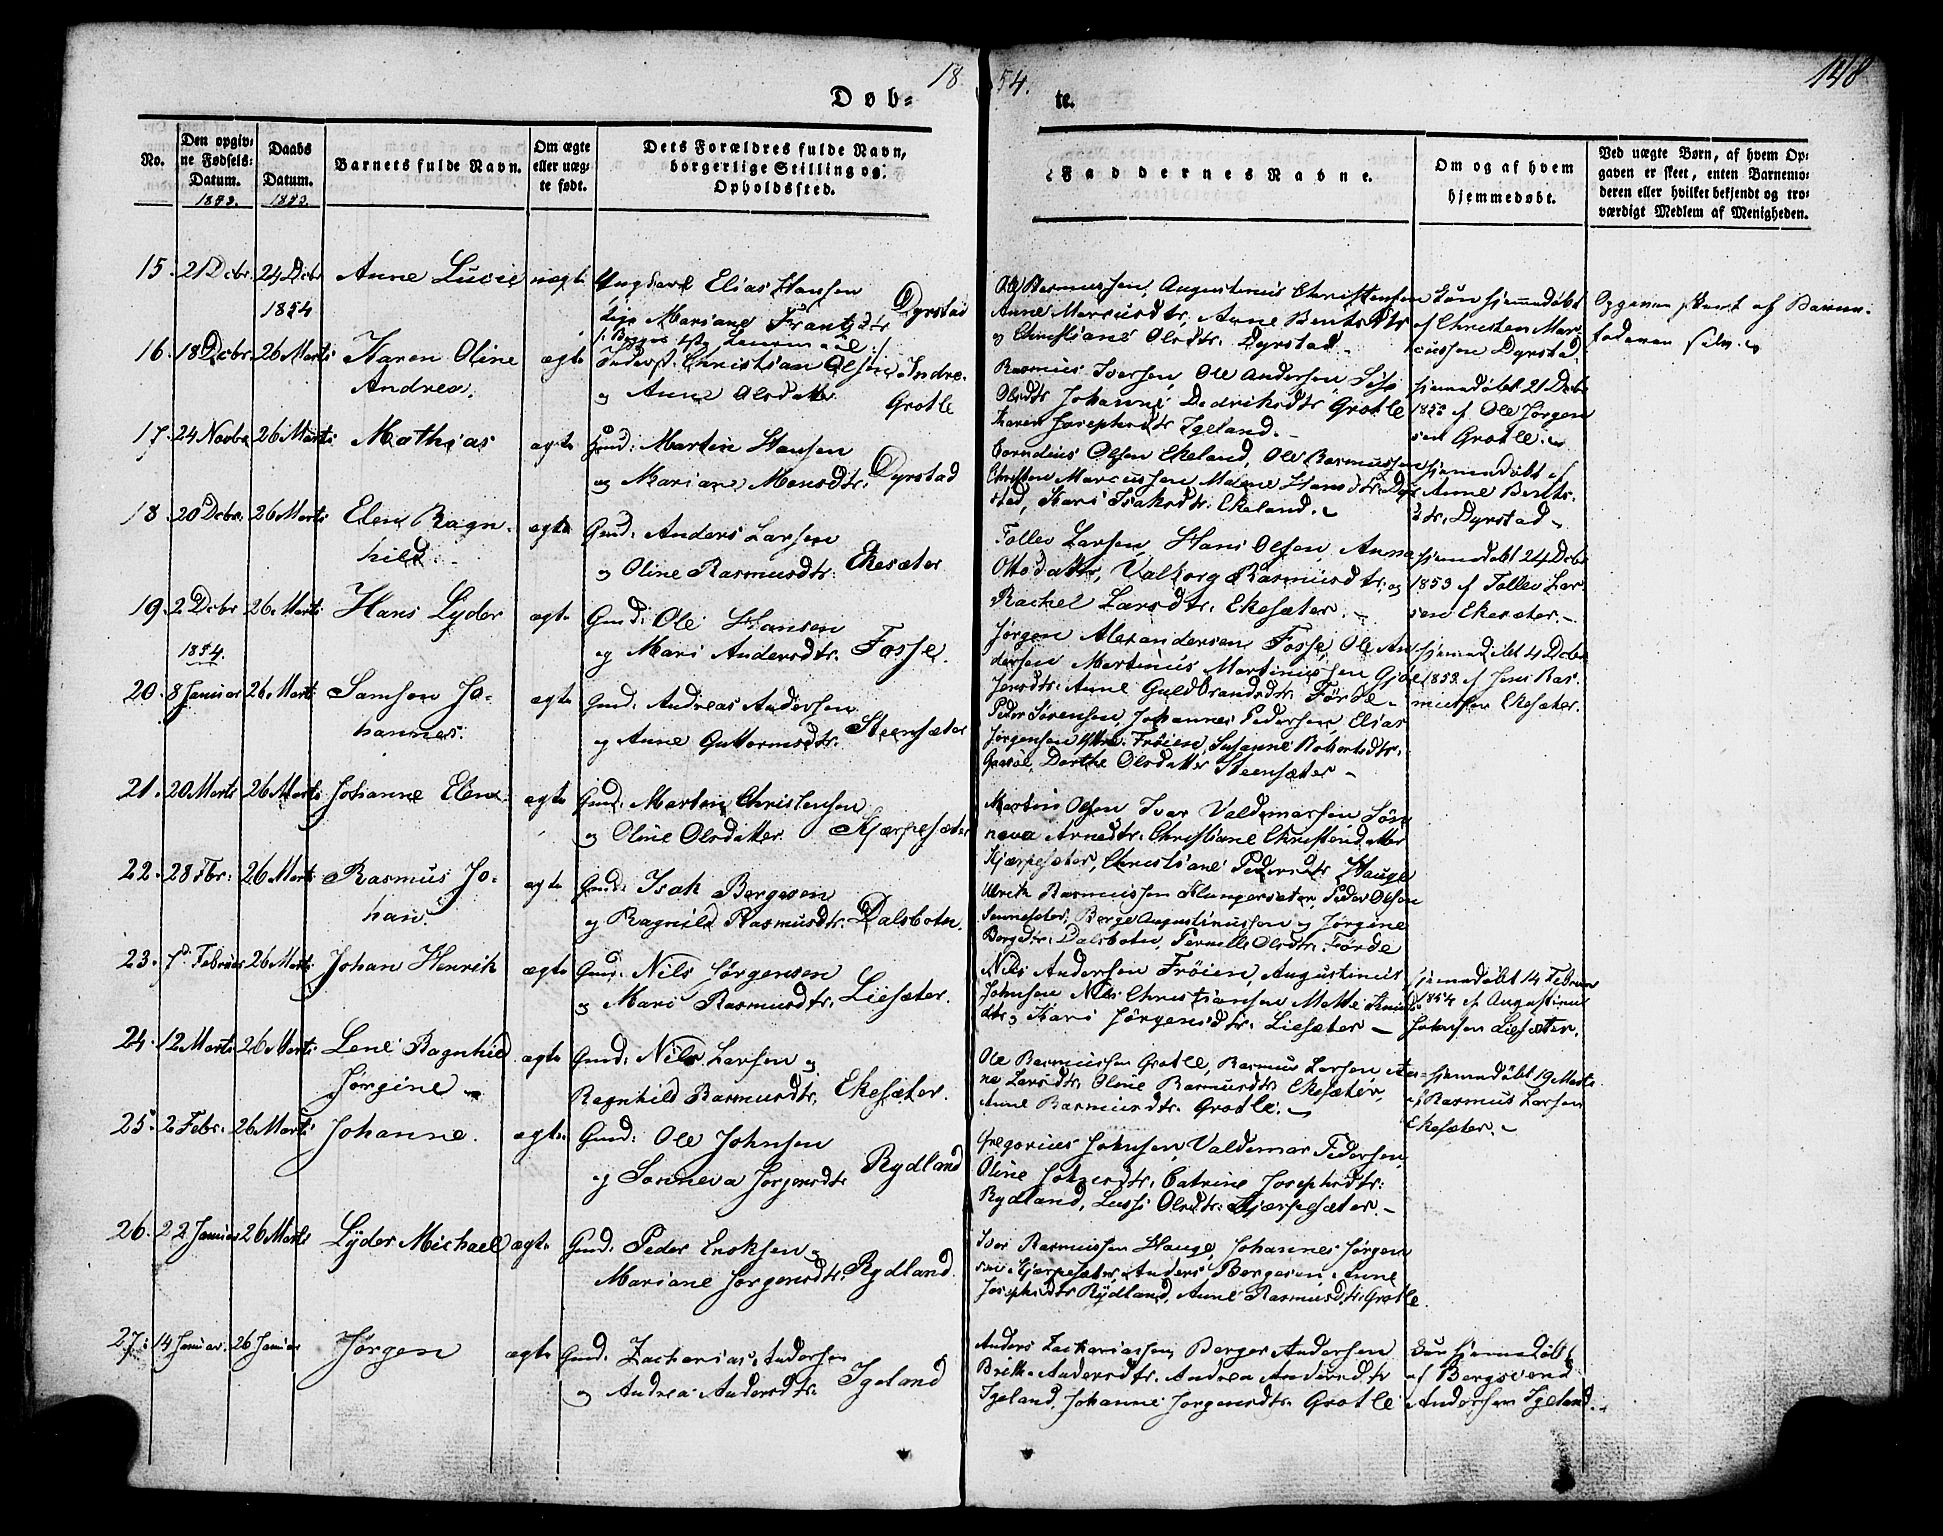 18 54.
148
Døb- te.
No.
Den opgiv-
ne Fødsels-
Datum.
1853.
Daabs
Datum.
1853.
Barnets fulde Navn.
Om ægte
eller uæg-
te født.
Dets Forældres fulde Navn,
borgerlige Stilling og
Opholdssted.
Faddernes Navne.
Om og af hvem
hjemmedøbt.
Ved uægte Børn, af hvem Op-
gaven er skeet, enten Barnemo-
deren eller hvilket bekjendt og tro-
værdigt Medlem af Menigheden.
15. 21 Dcbr. 24 Dcbr Anne Lucie uægte Ungkarl Elias Hansen
1854
Pige Mariane Frantzdtr Dyrstad
Ole Rasmussen, Augustinus Christensen
Anne Marcusdtr, Anne Bentsdtr
og Christiane Olsdtr. Dyrstad
hjemmedøbt
af Christen Mar-
cussen Dyrstad.
af Barne-
faderen selv.
16. 18 Dcbr. 26 Marts Karen Oline ægte Christian Olsen Indre-
Andrea.
og Anne Olsdatter Grotle
Rasmus Iversen, Ole Andersen,
Olsdtr Johanne Dedriksdtr Grotle
Karen Josephsdtr Igeland.
hjemmedøbt 21 Dcbr
1853 af Ole Jørgen
sen Grotle.
17. 24 Novbr 26 Marts Mathias ægte Gmd: Martin Hansen
og Mariane Monsdtr. Dyrstad
Cornelius Olsen Ekeland, Ole Rasmussen
Christen Marcussen Malene Hansdtr Dyr
stad, Kari Isaksdtr. Ekeland.
hjemmedøbt af
Anne Bents-
dtr. Dyrstad
18. 20 Dcbr. 26 Marts Elen Ragn- ægte Gmd: Anders Larsen
hild.
og Oline Rasmusdtr. Ekesæter
Tollev Larsen, Hans Olsen, Anna
Ottosdatter, Valborg Rasmusdtr. og
Rachel Larsdtr. Ekesæter.
hjemmedøbt 24 Dcbr
1853 af Tollev Lar-
sen Ekesæter.
19. 2 Dcbr 26 Marts Hans Lyder ægte Gmd: Ole Hansen
og Mari Andersdtr. Fosse.
Jørgen Alexandersen Fosse, Ole An-
dersen Martinus Martinussen
Jensdtr. Anne Guldbrandsdtr. Førde
hjemmedøbt 4 Dcbr
1853 af Jens Ras-
mussen Ekesæter.
1854.
20. 8 Januar 26 Marts Samson Jo- ægte Gmd: Andreas Andersen
hannes.
og Anne Guttormsdtr. Steensæter
Peder Sørensen, Johannes Pedersen Elias
Jørgensen Ytre-Frøien, Susanne Robertsdtr.
Gaasøe, Dorthe Olsdatter Steensæter
21. 20 Marts 26 Marts Johanne Elene ægte Gmd: Martin Christensen
og Oline Olsdatter Kjærpesæter
Martin Olsen Ivar Valdemarsen Søn-
neva Arnedtr. Christiane Christensdatter
Kjærpesæter, Christiane Pedersdtr Hauge
22. 28 Fbr. 26 Marts Rasmus Jo- ægte Gmd: Isak Bergesen
han.
og Ragnild Rasmusdtr. Dalsbotn.
Ulrik Rasmussen Klungersæter, Peder Olsen
Sennesæter, Berge Augustinussen og Jørgine
Bergdtr. Dalsbotn, Pernille Olsdtr. Førde
23. Februar 26 Marts Johan Henrik ægte Gmd: Nils Jørgensen
og Mari Rasmusdtr. Liesæter.
Nils Andersen Frøien, Augustinus
Johnsen Nils Christiansen Mette Knuds
dtr. og Kari Jørgensdtr. Liesæter
hjemmedøbt 14 Februar
1854 af Augustinus
Johnsen Liesæter.
24. 12 Marts 26 Marts Lene Ragnhild ægte Gmd: Nils Larsen og
Jørgine
Ragnhild Rasmusdtr. Ekesæter.
Ole Rasmussen Grotle, Rasmus Larsen, An-
ne Larsdtr. Oline Rasmusdtr Ekesæter,
Anne Rasmusdtr. Grotle.
hjemmedøbt 19 Marts
af Rasmus Larsen
Ekesæter.
25. 2 Febr. 26 Marts Johanne. ægte Gmd: Ole Johnsen
og Sønneva Jørgensdtr Rydland
Gregorius Johnsen, Valdemar Pedersen,
Oline Johnsdtr. Catrine Josephsdtr.
Rydland, Lussi Olsdtr. Kjærpesæter.
26. 22 Januar 26 Marts Lyder Michael ægte Gmd: Peder Eriksen og
Mariane Jørgensdtr. Rydland.
Iver Rasmussen Hauge, Johannes Jørgen
sen Kjærpesæter, Anders Bergesen, Anne
Josephsdtr Rydland, Anne Rasmusdtr. Grotle
27. 14 Januar. 26 Januar Jørgen ægte Gmd: Zacharias Andersen
og Andrea Andersdtr. Igeland
Anders Zachariassen, Berger Andersen
Brithe Andersdtr. Andrea Andersdtr
Igeland, Johanne Jørgensdtr. Grotle
hjemmedøbt
af Bergsvend
Andersen Igeland.